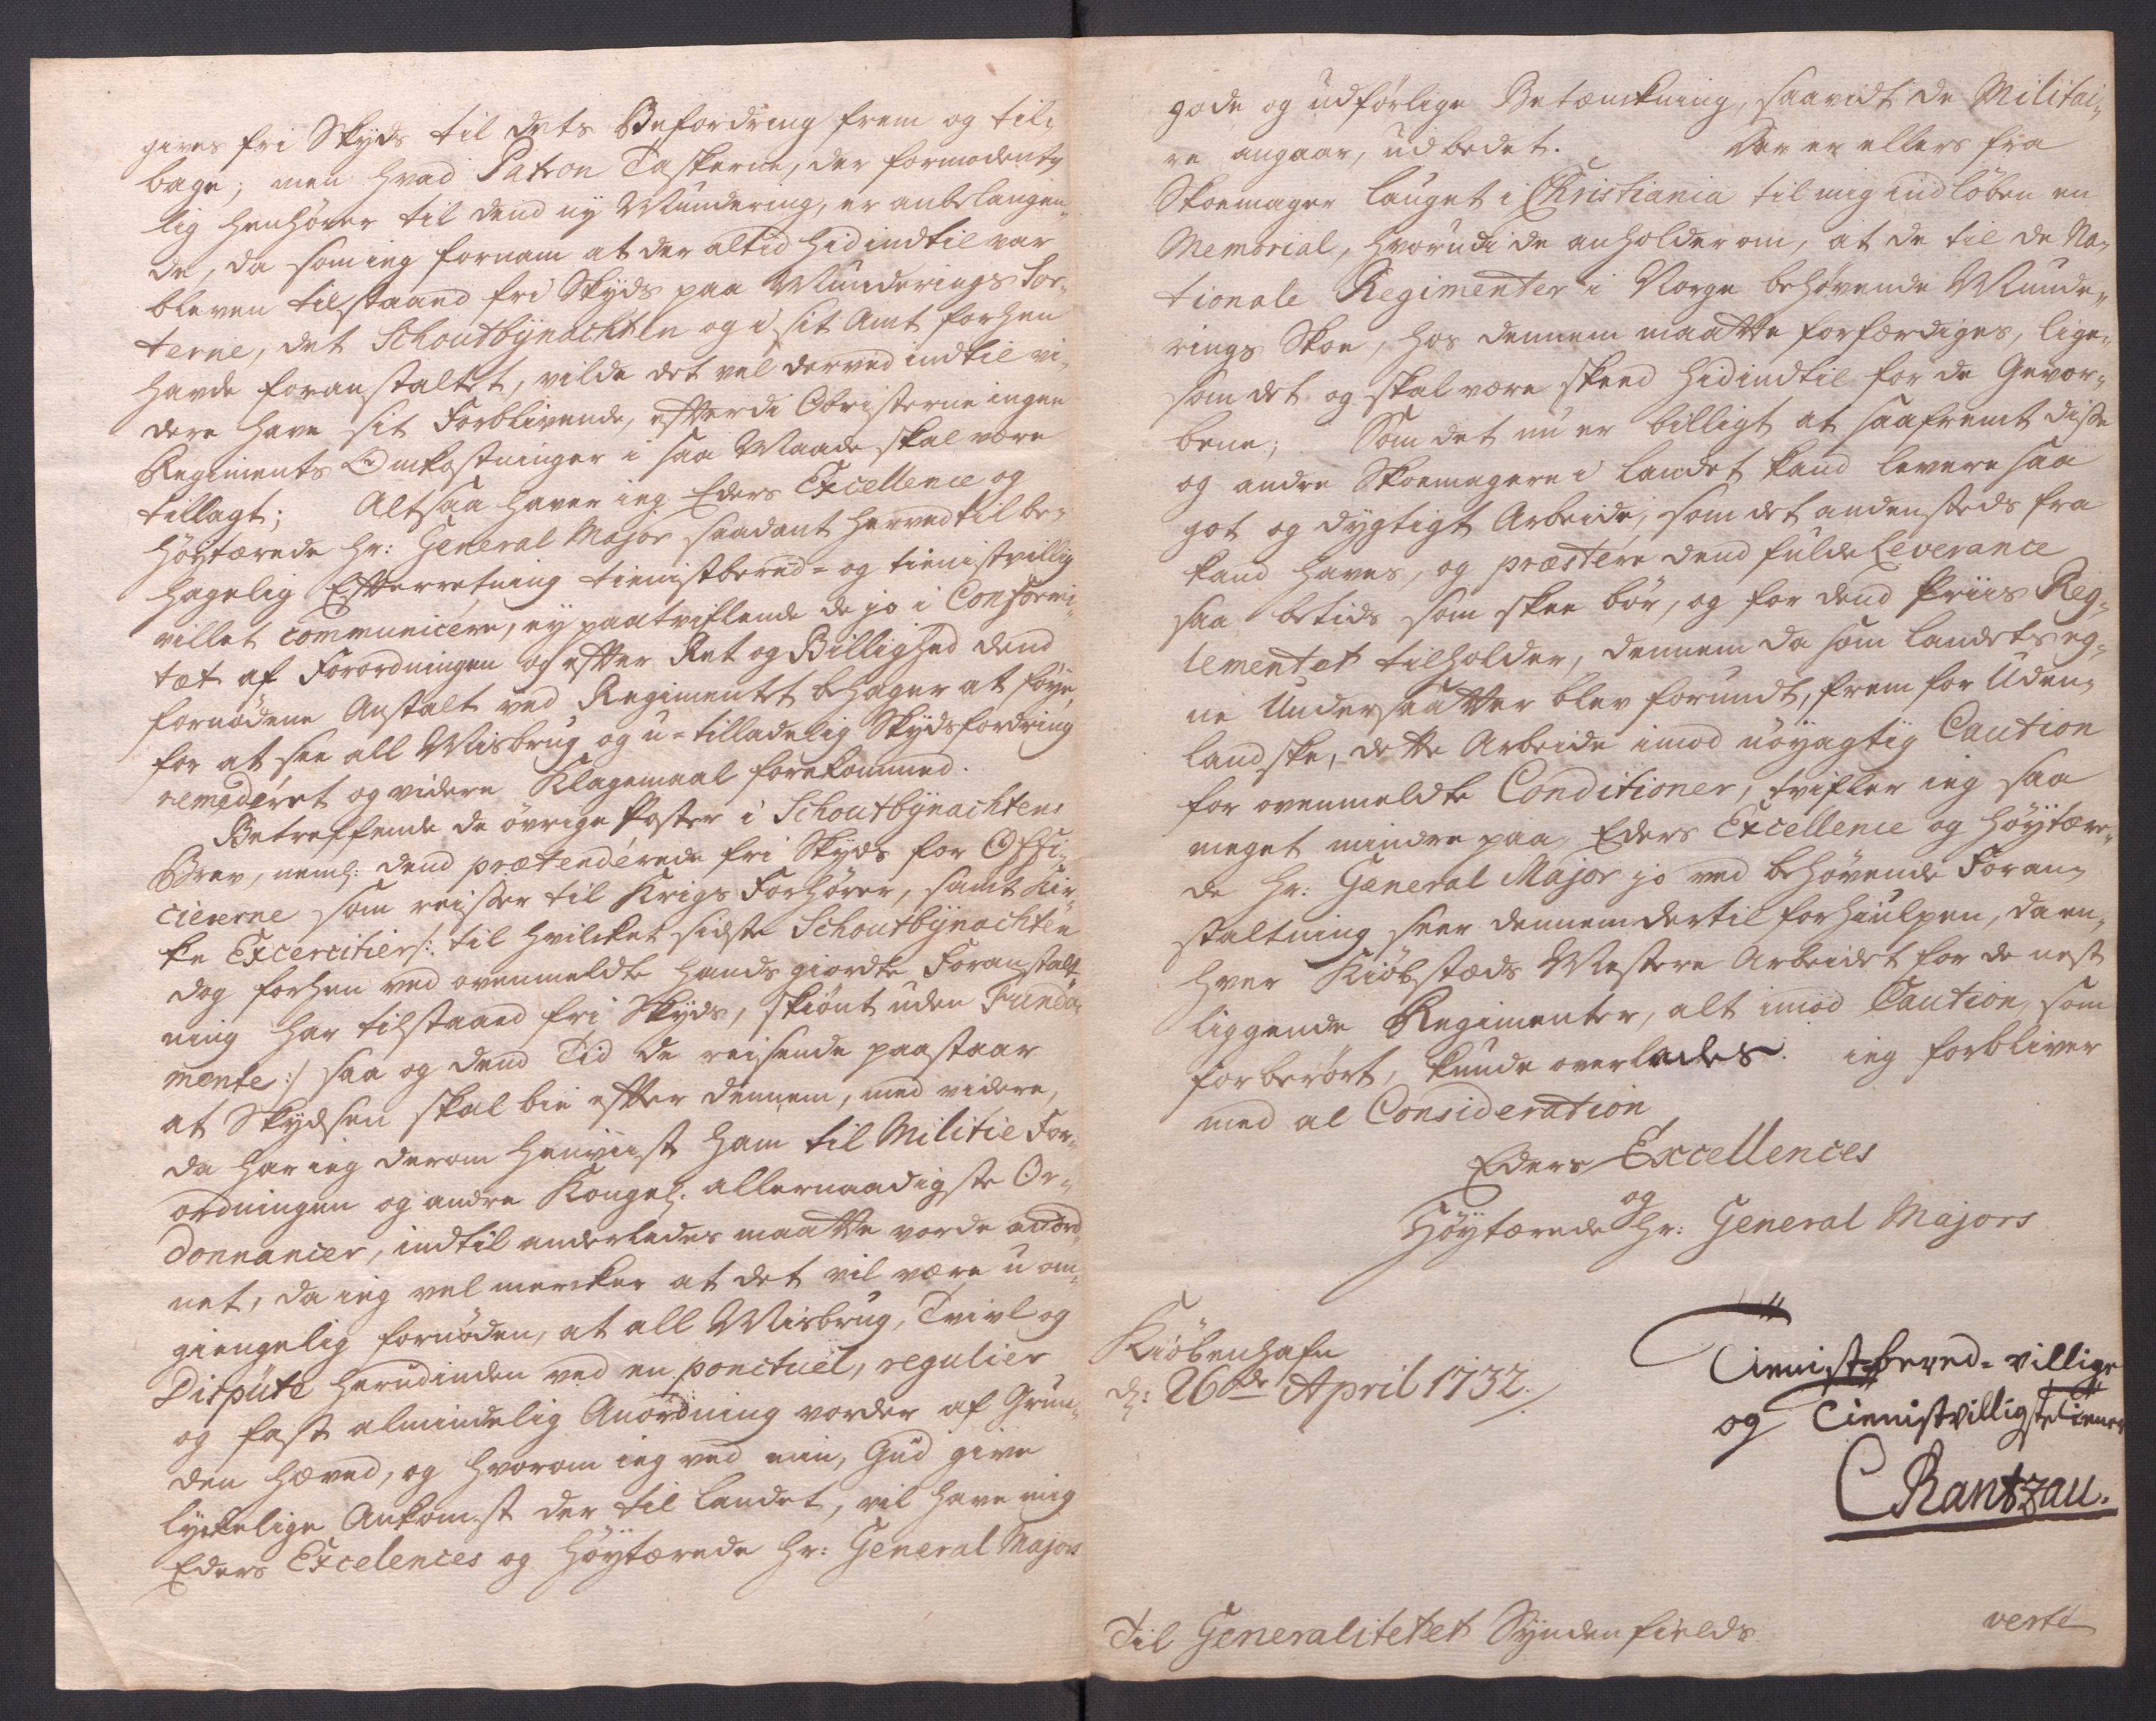 gives fri Skyds til dets Befordring frem og til-
bage; men hvad Patron Taskerne, der formodent-
lig henhörer til dend ny Mundering, er anbelangen-
de, da som ieg fornam at der altid hidindtil var
bleven tilstaaed fri Skyds paa Munderings Sor-
terne, det Schoutbynachten og i sit Amt forhen
havde foranstaltet, vilde det vel derved indtil vi-
dere have sit Forblivende, efterdi Obristerne ingen
Regiments Omkostninger i saa Maade skal være
tillagt; Altsaa haver ieg Eders Excellence og
Höytærede Hr: General Major saadant herved til be-
hagelig Efterretning tienistbered- og tienistvillig
villet communicere, ey paatviflende de jo i Conformi-
tæt af Forordningen og efter Ret og Billighed dend
fornödene Anstalt ved Regimentet behager at föye,
for at see all Misbrug og u-tilladelig Skydsfordring
remederet og videre Klagemaal forekommed.
Betreffende de övrige Poster i Schoutbynachtens
Brev, neml: dend prætenderede fri Skyds for Offi-
cierene som reiser til Krigs Forhörer, samt Kir-
ke Excercitier /: til hvilcket sidste Schoutbynachten
dog forhen ved ovenmeldte hands giordte Foranstalt-
ning har tilstaaed fri Skyds, skiönt uden Funda-
mente :/ saa og dend Tid de reisende paastaar
at Skydsen skal bie efter dennem, med videre,
da har ieg derom henviist ham til Militie For-
ordningen og andre Kongel: allernaadigste Or-
donnancer, indtil anderledes maatte vorde anord-
net, da ieg vel mercker at det vil være uom-
giengelig fornöden, at all Misbrug, Tvivl og
Dispute herudinden ved en ponctuel, regulier
og fast almindelig Anordning vorder af Grun-
den hæved, og hvorom ieg ved min, Gud give
lyckelige Ankomst der til Landet, vil have mig
Eders Excelences og Höytærede Hr: General Majors
gode og udförlige Betænckning, saavidt de Militai-
re angaar, udbedet. Der er ellers fra
Skoemager Lauget i Christiania til mig indlöben en
Memorial, hvorudi de anholder om, at de til de Na-
tionale Regimenter i Norge behövende Munde-
rings Skoe, hos dennem maatte forfærdiges, lige-
som det og skal være skeed hidindtil for de Gevor-
bene; Som det nu er billigt at saafremt disse
og andre Skoemagere i Landet kand levere saa
got og dygtigt Arbeide, som det andensteds fra
kand haves, og præstere dend fulde Leverance
saa betids som skee bör, og for dend Priis Reg-
lementet tilholder, dennem da som Landets eg-
ne Undersaatter blev forundt, frem for Uden-
landske, dette Arbeide imod nöyagtig Caution
for ovenmeldte Conditioner, tvifler ieg saa
meget mindre paa, Eders Excellence og Höytære-
de Hr: General Major jo ved behövende Foran-
staltning seer dennem dertil forhiulpen, da en-
hver Kiöbstæds Mestere Arbeidet for de nest
liggende Regimenter, alt imod Caution, som
forberört, kunde overlades. ieg forbliver
med al Consideration
Eders Excellences
og
Höytærede Hr: General Majors
Kiöbenhafn
d: 26de April 1732.
Tienist-bered-villige
og Tienistvilligste tiener
C Rantzau.
Til Generalitetet Syndenfields
verte